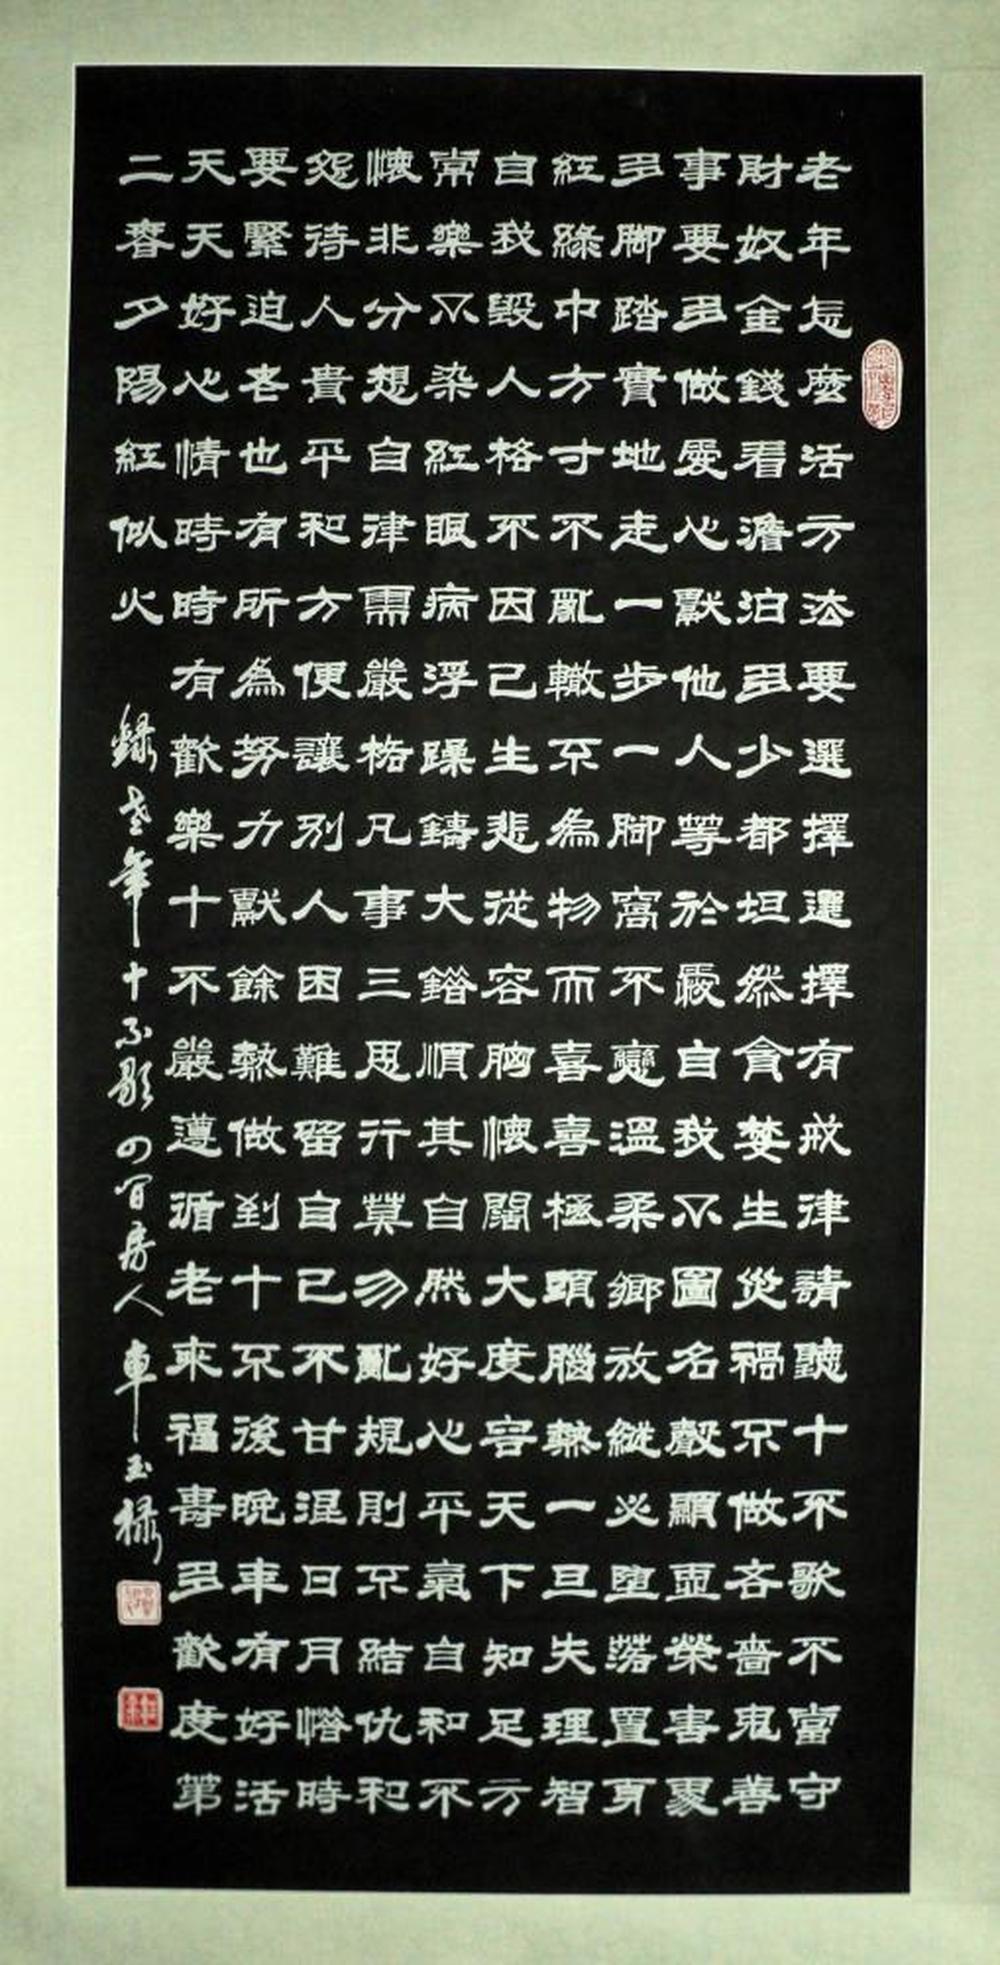 老年怎麼活方法要選擇選擇有戒律請聽十不歌不富守
財奴金錢看澹泊多少都坦然貪婪生災禍不做吝嗇鬼善
事要多做愛心獻他人等於愛自我不圖名聲顯虛榮害
多腳踏實地走一步一腳窩不戀溫柔鄉放縱必墮落置身
紅綠中方寸不亂轍不為物而喜喜極頭腦熱一旦失理智
自我毀人格不因己生悲從容胸懷闊大度容天下知足方
常樂不染紅眼病浮躁鑄大錯順其自然好心平氣自和不
懷非分想自律需嚴格凡事三思行莫勿亂規則不結仇和
怨待人貴平和方便讓別人困難留自己不甘混日月惜時
要緊迫老也有所為努力獻餘熱做到十不後晚年有好活
天天好心情時時有歡樂十不嚴遵循老來福壽多歡度第
二春夕陽紅似火
錄老年十不歌 四百房人車玉祿